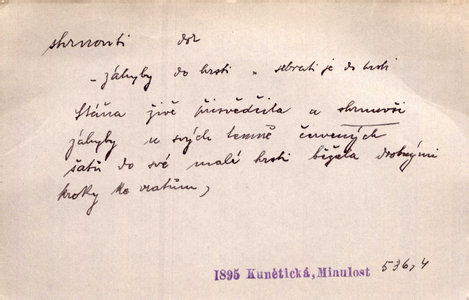 shrnouti dok
„záhyby do hrsti“ sebrati je do hrsti
Stáňa živě přisvědčila a shrnuvši
záhyby u svých temně červených
šatů do své malé hrsti běžela drobnými
kroky ke vratům,
1895 Kunětická, Minulost 536,4